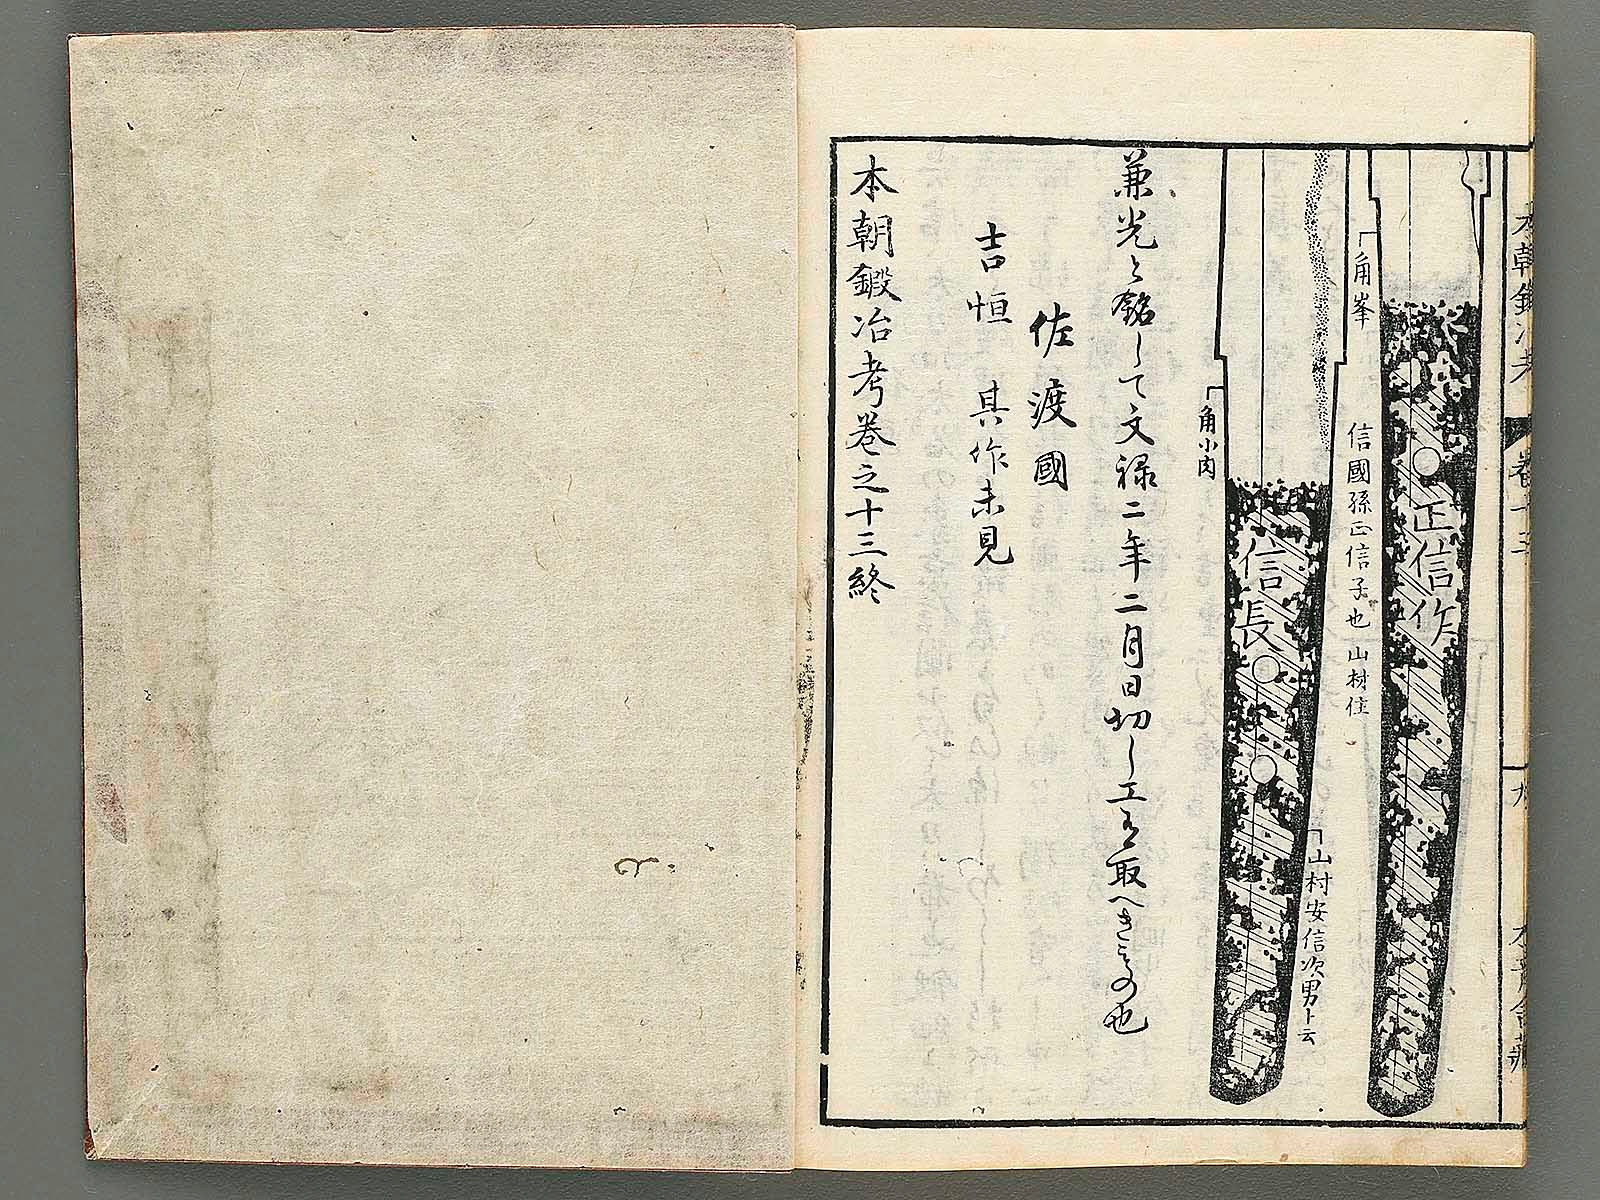 本朝鍛冶考
卷十三
九
正信作
角峯
信國孫正信子也山村住
信長
角小肉
山村安信次男ト云
兼光と銘して文禄二年二月日切し工有取へきもの也
佐渡國
吉恒 其作未見
本朝鍛冶考卷之十三終